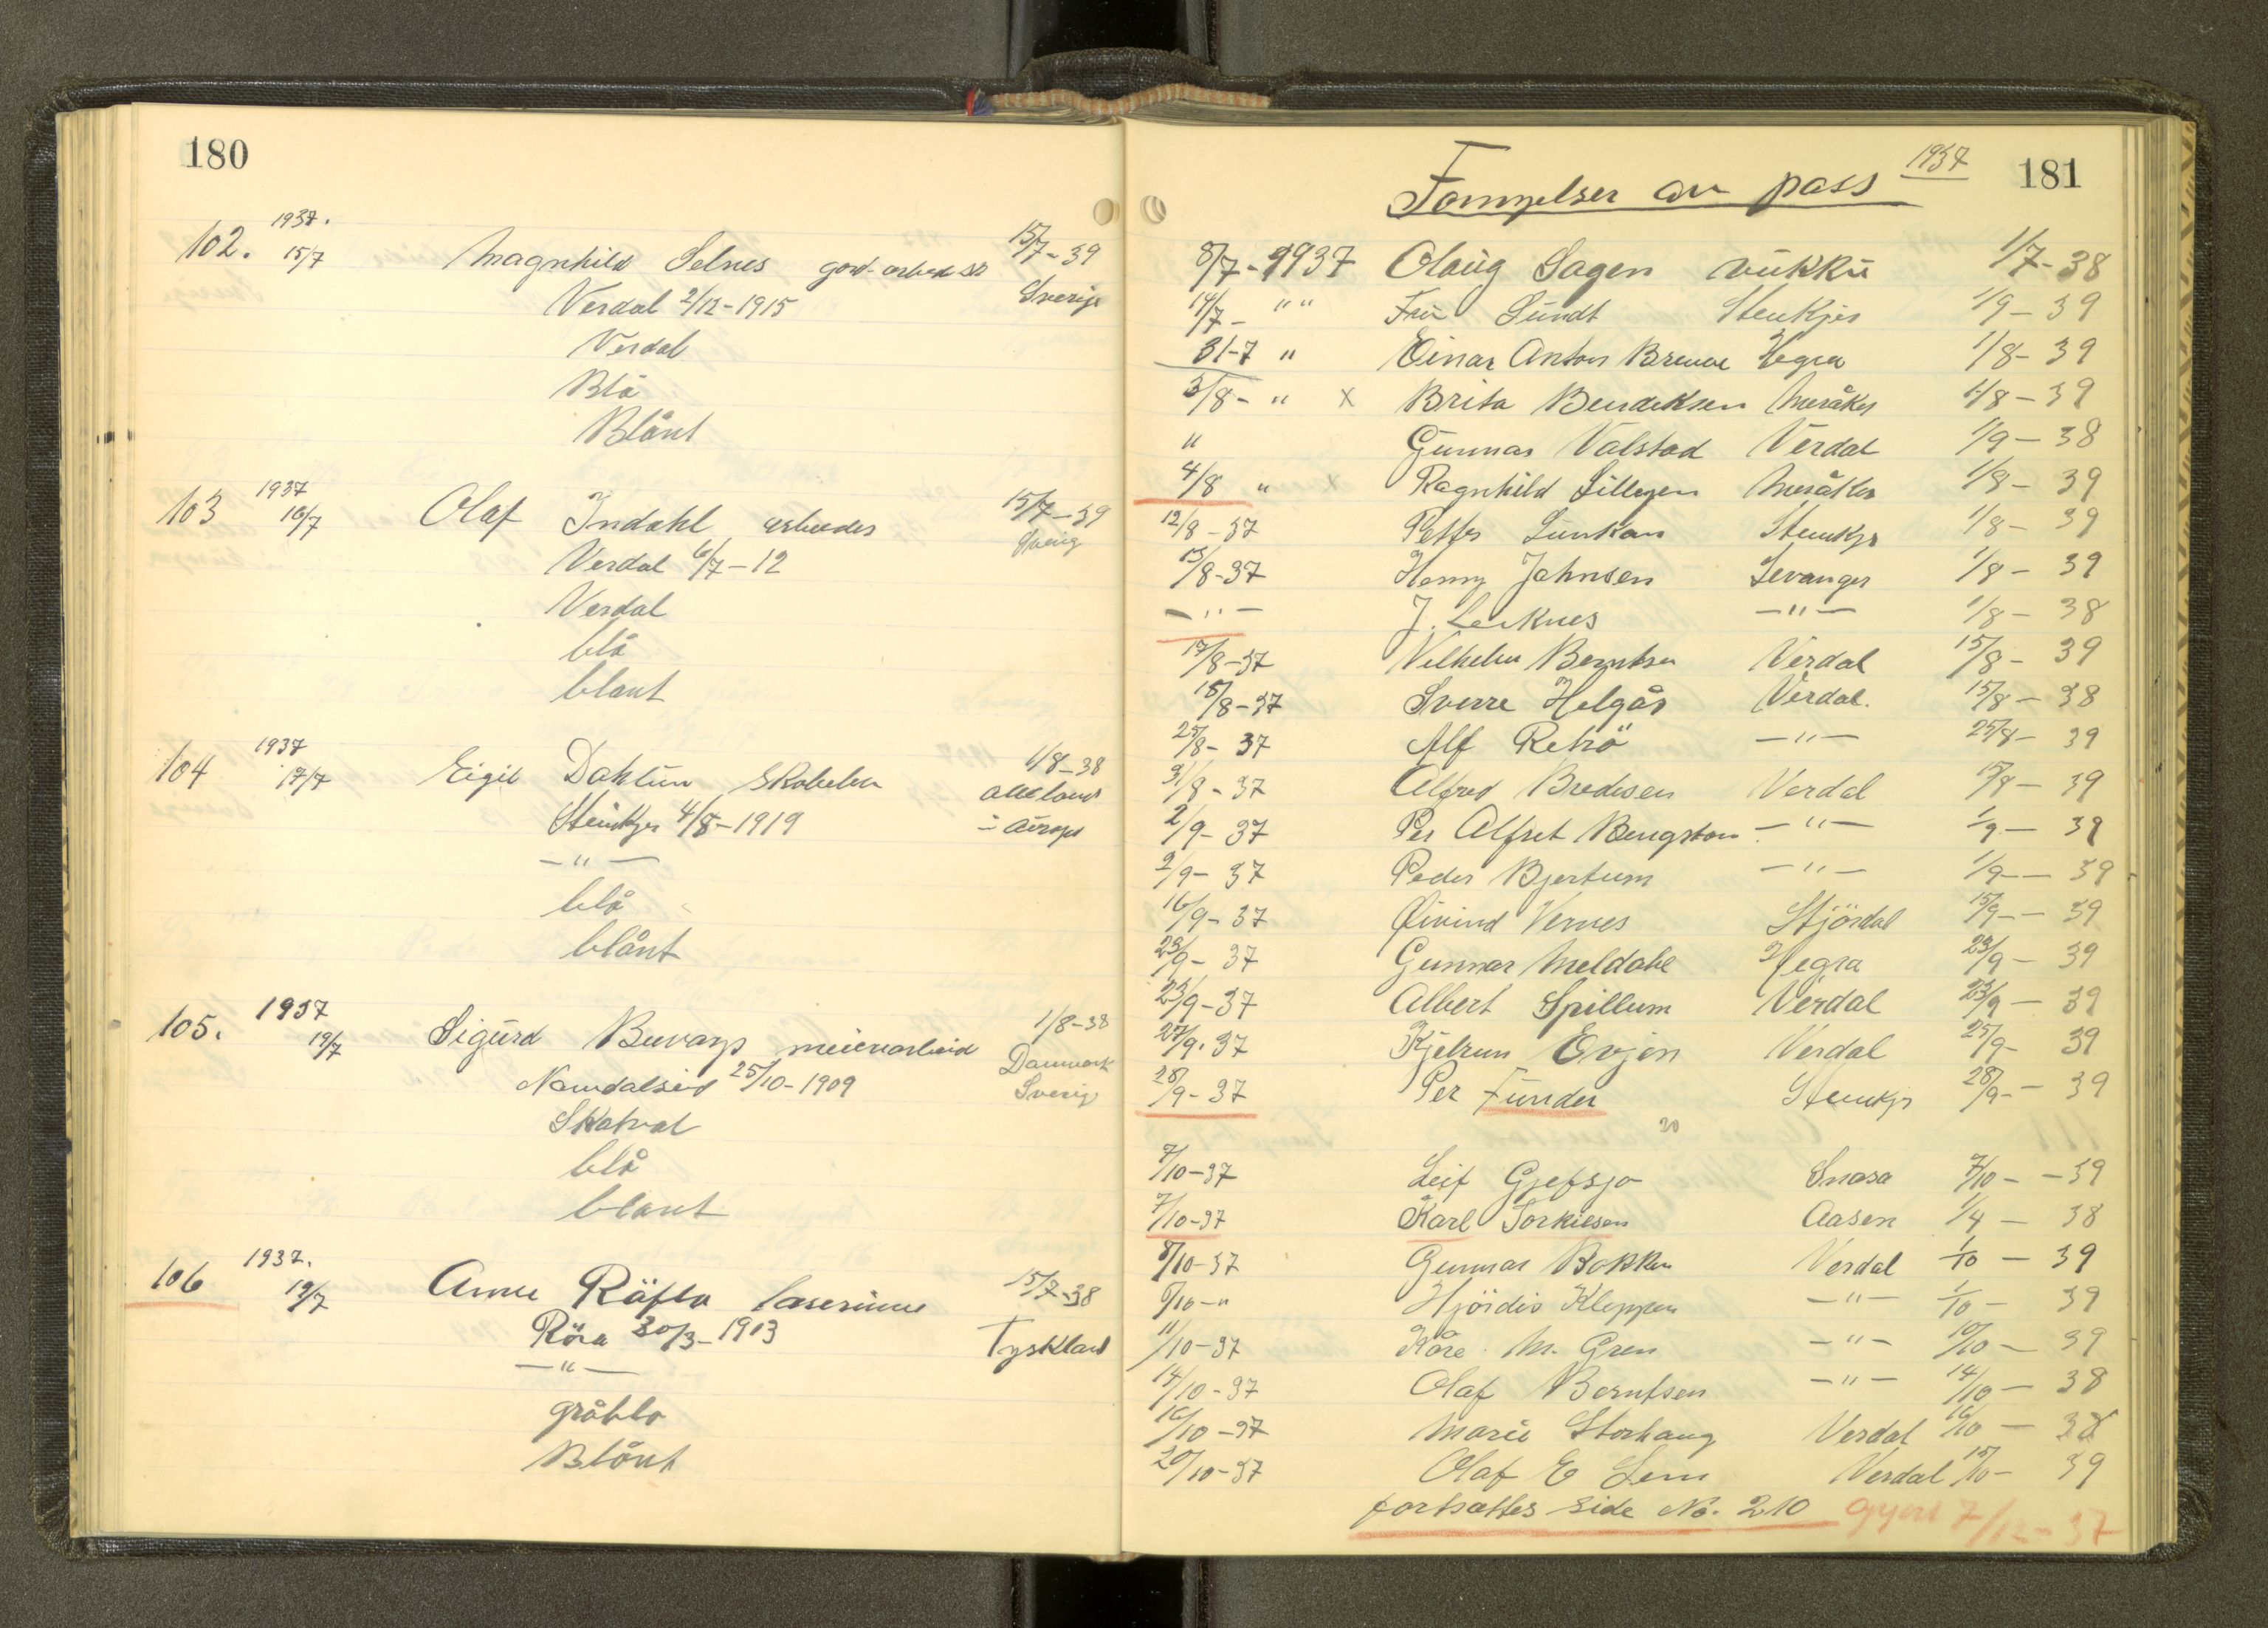 180
102. 1937. 15/7 Magnhild Selnes 15/7-39
Verdal 2/12-1915 Sverige
Verdal
Blå
Blånt
103 1937 16/7 Olaf Indahl arbeider 15/7-39
Verdal 6/7-12 Sverig
Verdal
blå
blant
104 1937 17/7 Eigil Dahlun 1/8-38
Steinkjer 4/8-1919 alle land
-"- i Europa
blå
blånt
105. 1937 19/7 Sigurd 1/8-38
Namdalseid 25/10-1909 Danmark
Skatval Sverig
blå
blant
106 1937. 19/7 15/7-38
Röra 30/3-1913 Tyskland
-"-
gråblå
Blånt
181
Fornyelser av pass 1937
8/7-1937 Olaug Sagen Vukku 1/7-38
14/7- "" Fru Sundt Steinkjer 1/9-39
31-7 " Einar Anton Hegra 1/8-39
3/8- " x Brita Bendiksen Meråker 1/8-39
" Gunnar Valstad Verdal 1/9-38
4/8 " x Ragnhild Meråker 1/8-39
12/8-37 Petter Steinkjer 1/8-39
13/8-37 Henny Johnsen Levanger 1/8-39
-"- J. Leiknes -"- 1/8-38
17/8-37 Vilhelm Berntsen Verdal 15/8-39
18/8-37 Sverre Helgås Verdal. 15/8-38
25/8-37 Alf -"- 25/8-39
31/8-37 Alfred Bredesen Verdal 15/8-39
2/9-37 Per Alfret Bengston -"- 1/9-39
2/9-37 Peder Bjertum -"- 1/9-39
16/9-37 Øivind Vernes Stjördal 15/9-39
23/9-37 Gunnar Meldahl Hegra 23/9-39
23/9-37 Albert Spillum Verdal 23/9-39
27/9-37 Kjelrun Evjen Verdal 25/9-39
28/9-37 Per Funder Steinkjr 28/9-39
20
7/10-37 Leif Gjefsjo Snasa 7/10-39
7/10-37 Karl Torkilsen Aasen 1/4-38
8/10-37 Gunnar Bokken Verdal 1/10-39
8/10-" Hjördis Kleppen -"- 1/10-39
11/10-37 Kåre M. Gren -"- 10/10-39
14/10-37 Olaf Berntsen -"- 14/10-38
16/10-37 Marie Storhaug Verdal 16/10-38
20/10-37 Olaf E Lem Verdal 15/10-39
fortsættes side No. 210 gjort 7/12-37